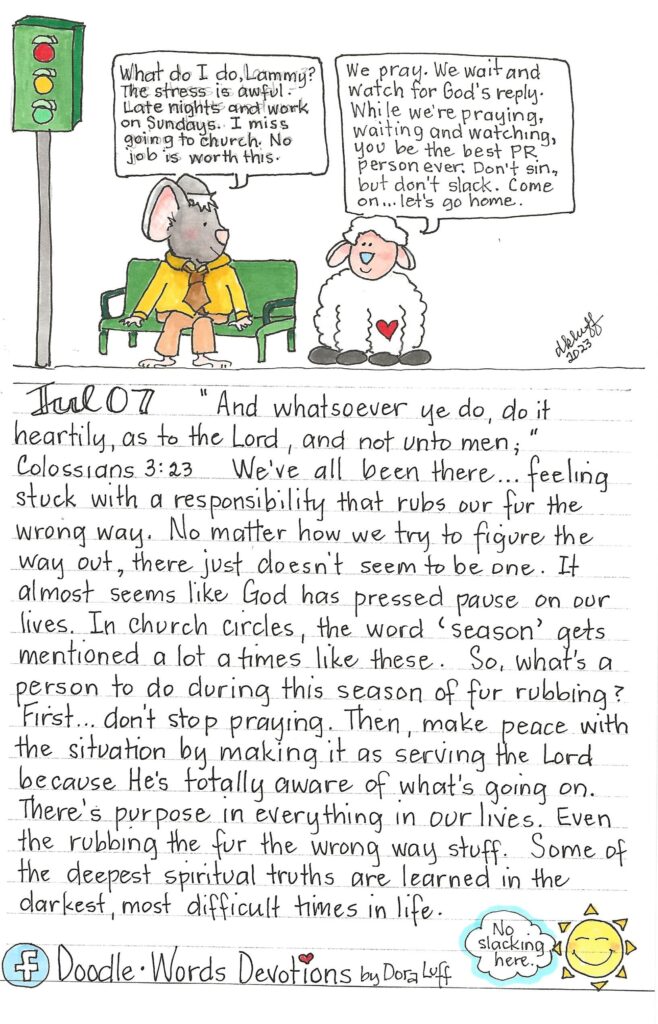 What do I do, Lammy?
The stress is awful.
Late nights and work
on Sundays. I miss
going to church. No
job is worth this.
We pray. We wait and
watch for God's reply.
While we're praying,
waiting and watching,
you be the best PR
person ever. Don't sin,
but don't slack. Come
on... let's go home.
dkluff
2023
Jul 07 "And whatsoever ye do, do it
heartily, as to the Lord, and not unto men;"
Colossians 3:23 We've all been there... feeling
stuck with a responsibility that rubs our fur the
wrong way. No matter how we try to figure the
way out, there just doesn't seem to be one. It
almost seems like God has pressed pause on our
lives. In church circles, the word 'season' gets
mentioned a lot a times like these. So, what's a
person to do during this season of fur rubbing?
First... don't stop praying. Then, make peace with
the situation by making it as serving the Lord
because He's totally aware of what's going on.
There's purpose in everything in our lives. Even
the rubbing the fur the wrong way stuff. Some of
the deepest spiritual truths are learned in the
darkest, most difficult times in life.
No
slacking
here.
f Doodle・Words Devotions by Dora Luff